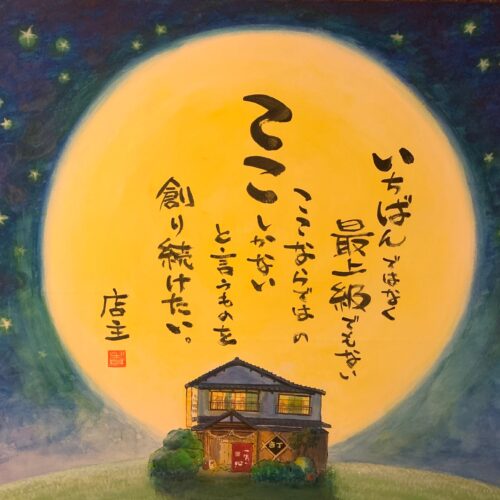 いちばんではなく
最上級でもない
ここならではの
ここしかない
と言うものを
創り続けたい。
店主